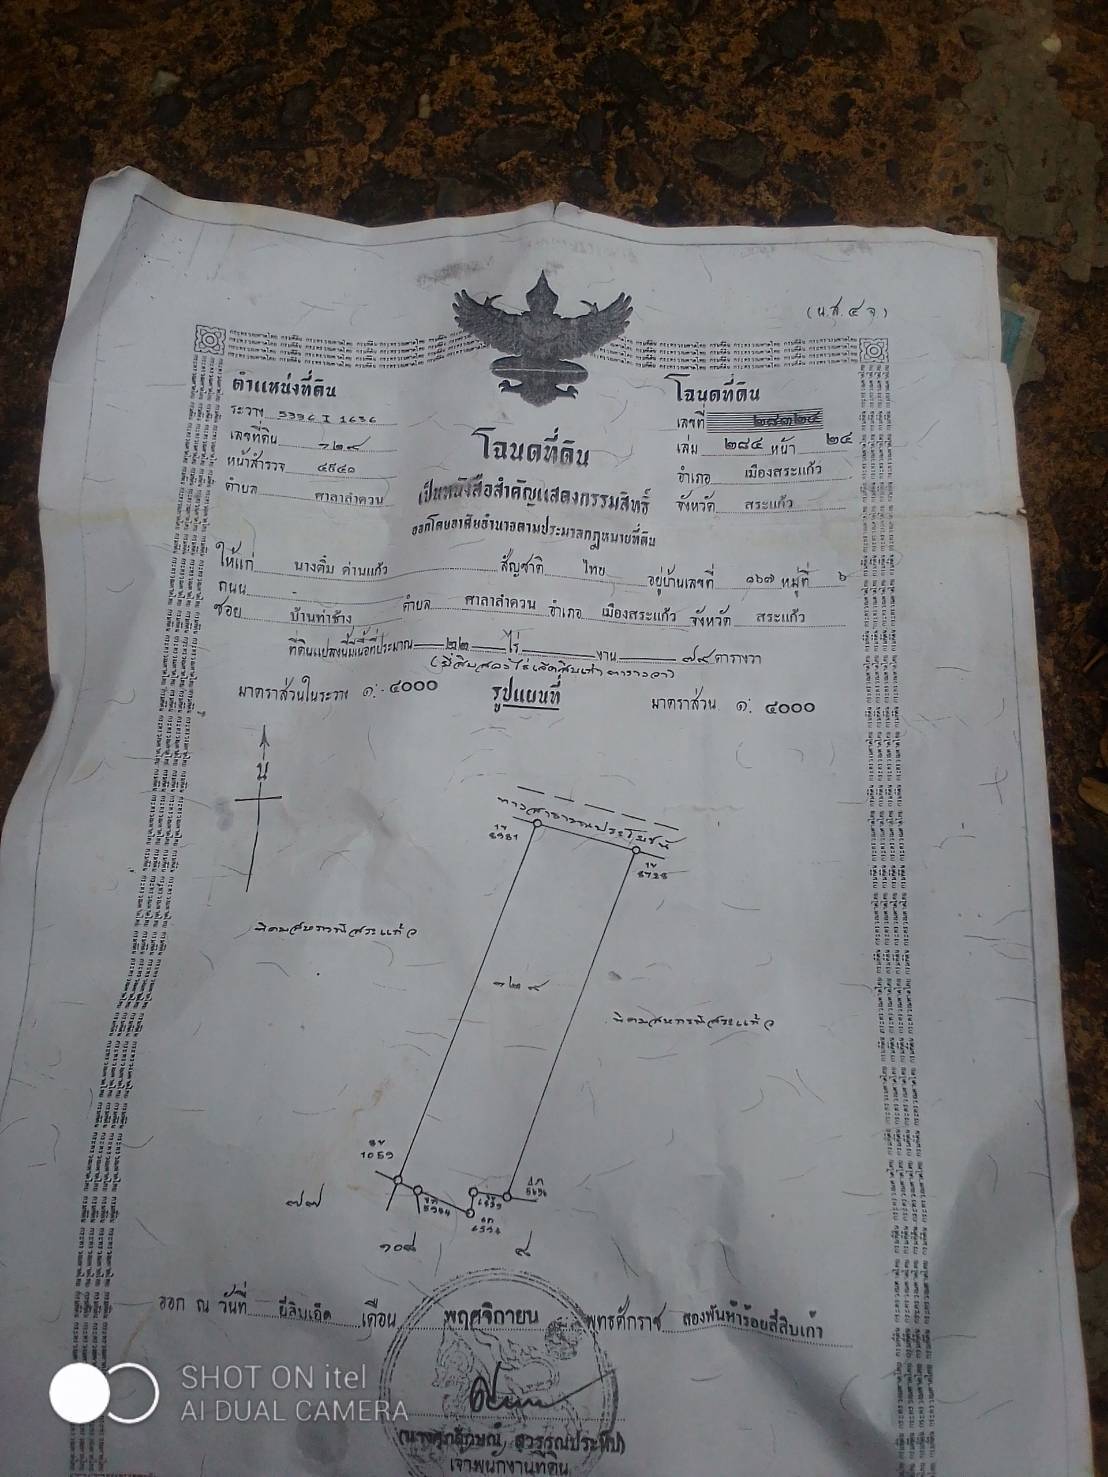 (น.ส. ๔ จ)
ตำแหน่งที่ดิน
ระวาง 5336 I 1636
เลขที่ดิน ๓๒๙
หน้าสำรวจ ๔๕๔๑
ตำบล ศาลาลำดวน
โฉนดที่ดิน
เลขที่ ๒๘๓๒๔
เล่ม ๒๘๔ หน้า ๒๔
อำเภอ เมืองสระแก้ว
จังหวัด สระแก้ว
โฉนดที่ดิน
เป็นหนังสือสำคัญแสดงกรรมสิทธิ์
ออกโดยอาศัยอำนาจตามประมวลกฎหมายที่ดิน
ให้แก่ นางติ๋ม ด่านแก้ว สัญชาติ ไทย อยู่บ้านเลขที่ ๑๖๗ หมู่ที่ ๖
ถนน -
ซอย บ้านท่าช้าง ตำบล ศาลาลำดวน อำเภอ เมืองสระแก้ว จังหวัด สระแก้ว
ที่ดินแปลงนี้มีเนื้อที่ประมาณ ๒๒ ไร่ - งาน ๗๙ ตารางวา
(ยี่สิบสองไร่เจ็ดสิบเก้าตารางวา)
มาตราส่วนในระวาง ๑:๔๐๐๐ รูปแผนที่ มาตราส่วน ๑: ๔๐๐๐
น
ทางสาธารณประโยชน์
๓๒๙
นิคมสหกรณ์สระแก้ว
นิคมสหกรณ์สระแก้ว
1059
๗๗
๑๐๘
๘
ออก ณ วันที่ ยี่สิบเอ็ด เดือน พฤศจิกายน พุทธศักราช สองพันห้าร้อยสี่สิบเก้า
(นางศุภลักษณ์ สุวรรณประทีป)
เจ้าพนักงานที่ดิน
SHOT ON itel
AI DUAL CAMERA